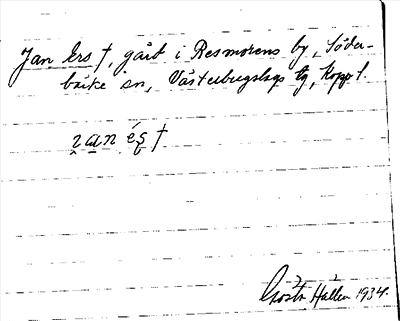 Jan Ers †, gård i Resmorens by, Söder-
bärke sn, Västerbergslags tg, Kopp l.
Gösta Hallen 1934.